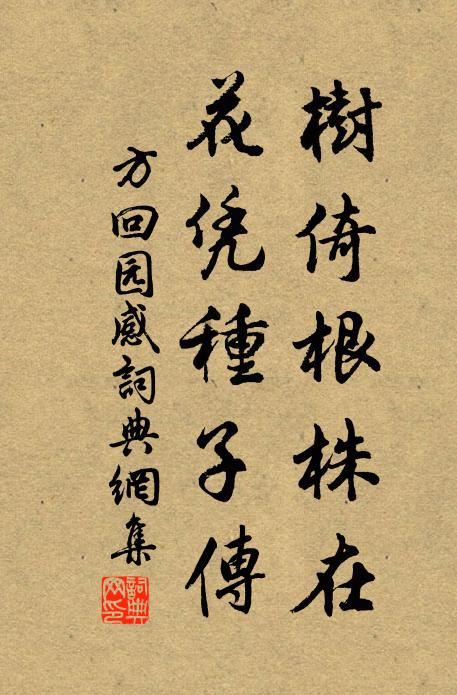 樹倚根株在
花凭種子傳
方回园感詞典網集
詞典網印